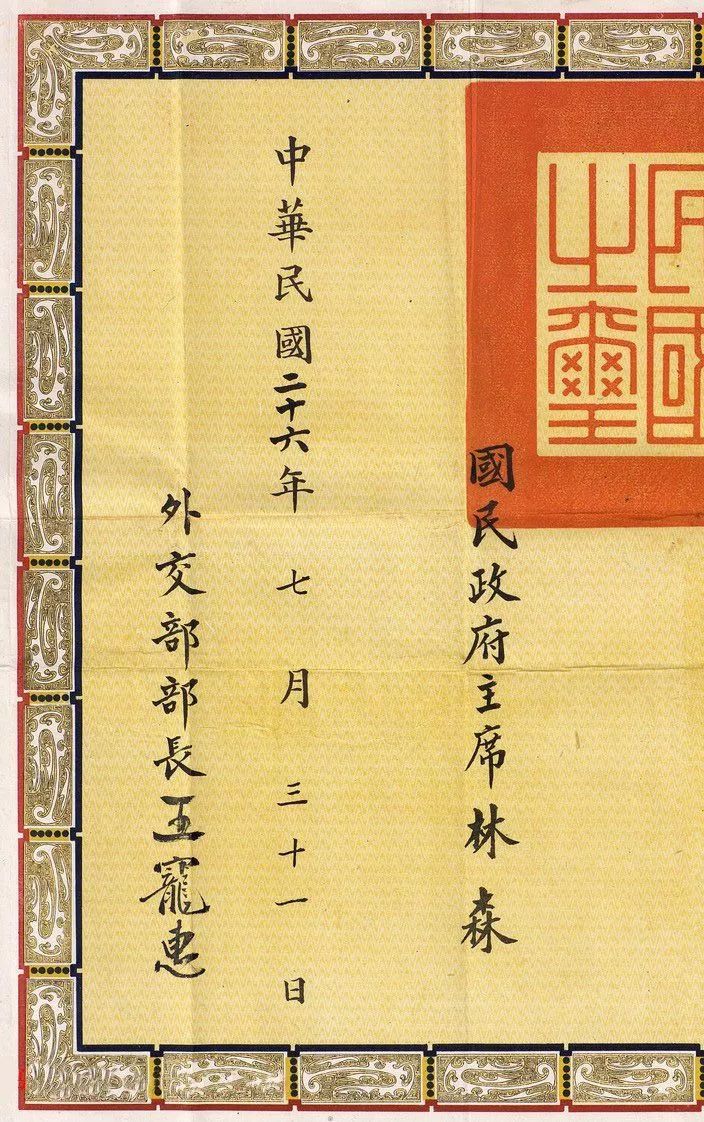 民國
之璽
國民政府主席林森
中華民國二十六年七月三十一日
外交部部長王寵惠